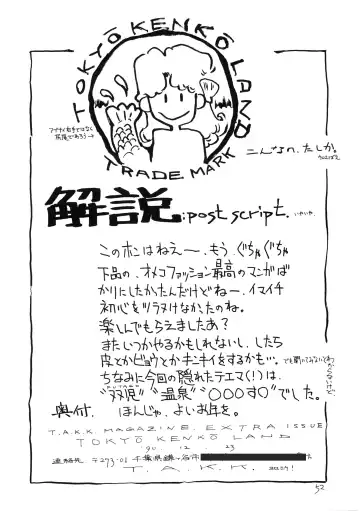 TOKYŌ KENKŌ LAND
TRADE MARK
こんなの、たしか。
解説:post script.
このホンはねえー、もう ぐちゃぐちゃ
下品の、オメコファッション最高のマンガば
かりにしたかったんだけどねー、イマイチ
初心をツラヌけなかったのね。
楽しんでもらえましたあ?
またいつかやるかもしれないし、したら
皮とかビョウとかギンギンをするかも…。
ちなみに今回の隠れたテエマ(!)は、
"双児" "温泉" "○○○す○"でした。
奥付. ほんじゃ、よいお年を。
T.A.K.K. MAGAZINE. EXTRA ISSUE
TOKYŌ KENKŌ LAND
90. 12. 23
連絡先 〒273-01 千葉県鎌ヶ谷市
T.A.K.K.
52